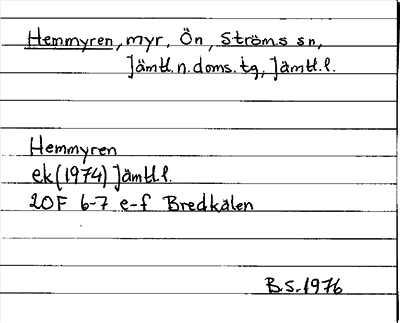 Hemmyren, myr, Ön, Ströms sn,
Jämtl.n.doms.tg, Jämtl.l.
Hemmyren
ek(1974) Jämtl.l.
20F 6-7 e-f Bredkälen
B.S.1976